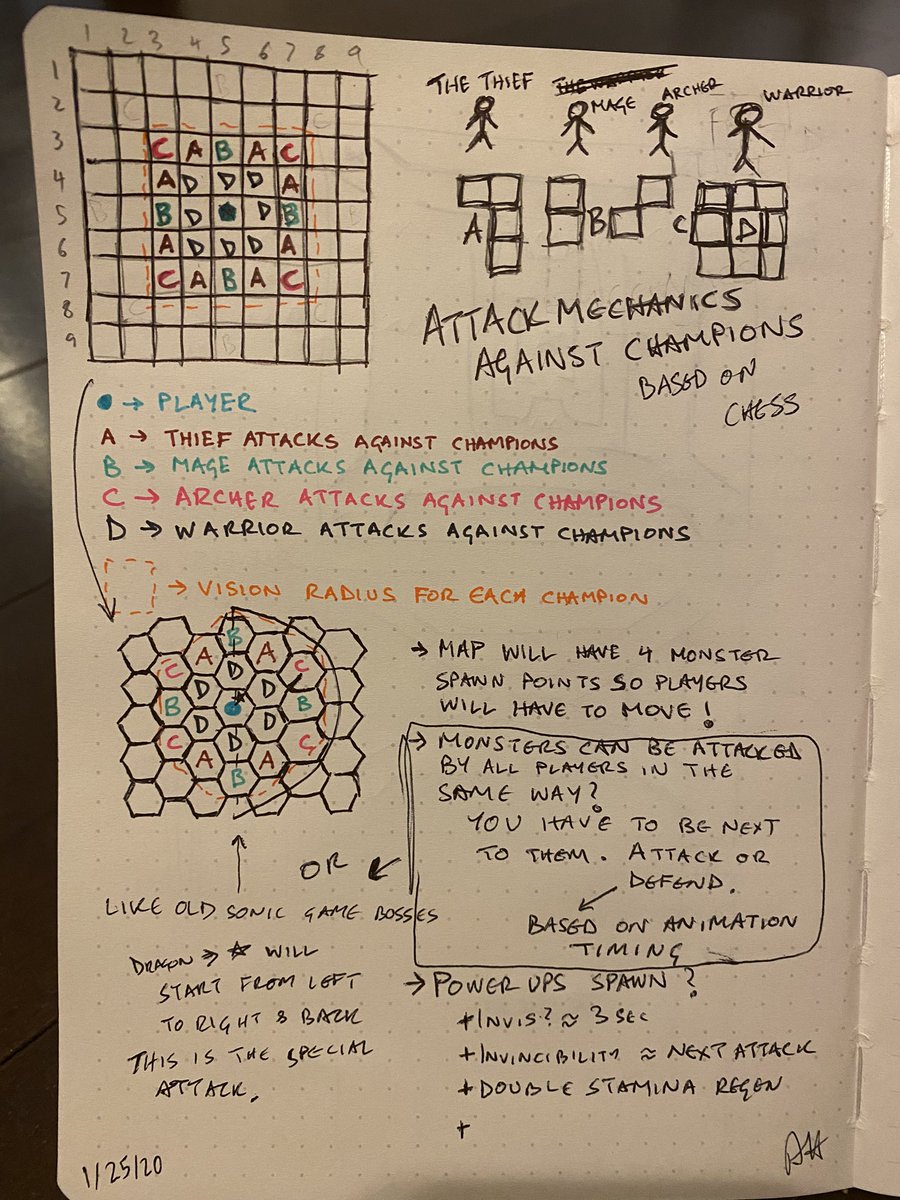 1 2 3 4 5 6 7 8 9
1
2
3 C A B A C
4 A D D D A
5 B D D B
6 A D D D A
7 C A B A C
8
9
THE THIEF
MAGE
ARCHER
WARRIOR
A
B
C
D
ATTACK MECHANICS
AGAINST CHAMPIONS
BASED ON
CHESS
→ PLAYER
A → THIEF ATTACKS AGAINST CHAMPIONS
B → MAGE ATTACKS AGAINST CHAMPIONS
C → ARCHER ATTACKS AGAINST CHAMPIONS
D → WARRIOR ATTACKS AGAINST CHAMPIONS
→ VISION RADIUS FOR EACH CHAMPION
B
A A
C D C
D D
B B
D D
C D C
A A
B
OR
LIKE OLD SONIC GAME BOSSES
DRAGON → ☆ WILL
START FROM LEFT
TO RIGHT & BACK
THIS IS THE SPECIAL
ATTACK.
→ MAP WILL HAVE 4 MONSTER
SPAWN POINTS SO PLAYERS
WILL HAVE TO MOVE!
→ MONSTERS CAN BE ATTACKED
BY ALL PLAYERS IN THE
SAME WAY?
YOU HAVE TO BE NEXT
TO THEM. ATTACK OR
DEFEND.
BASED ON ANIMATION
TIMING
→ POWER UPS SPAWN?
+ INVIS? ≈ 3 SEC
+ INVINCIBILITY ≈ NEXT ATTACK
+ DOUBLE STAMINA REGEN
+
1/25/20